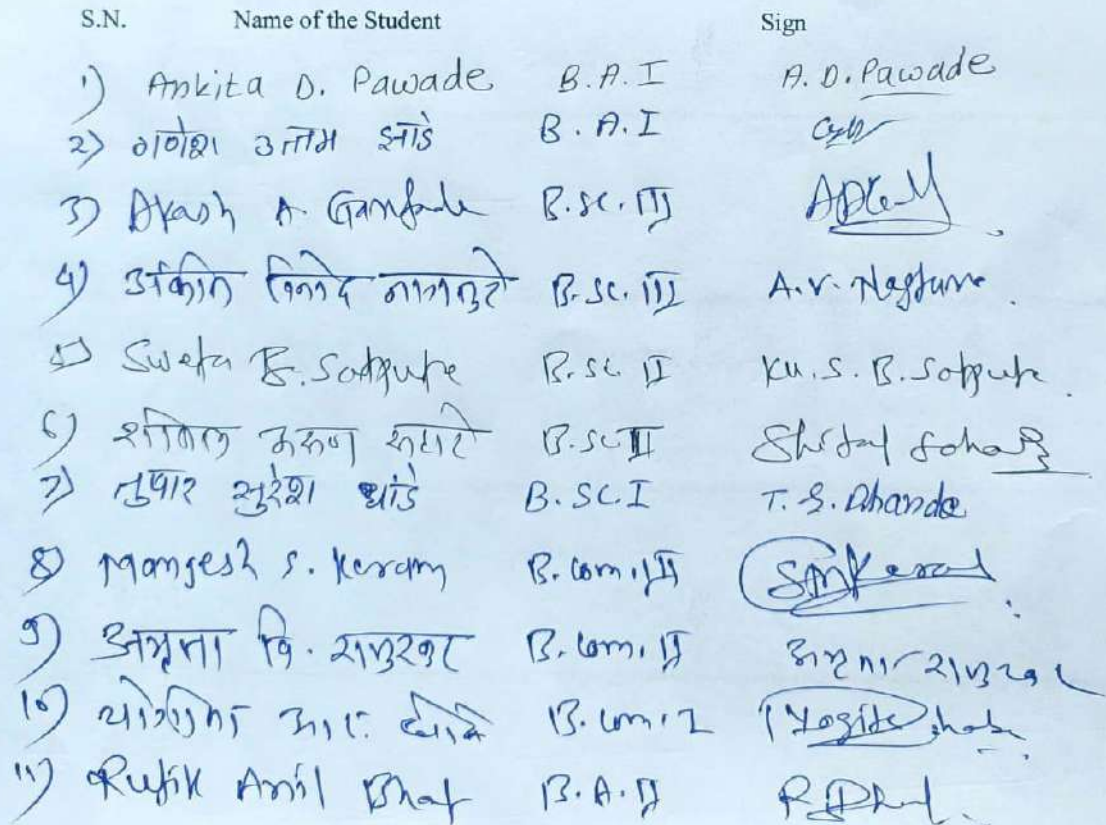 S.N. Name of the Student Sign
1) Ankita D. Pawade B.A.I A. D. Pawade
2) गणेश उत्तम झाडे B.A.I
3) Akash A. B.Sc.III
4) अंकित विनोद नागपुरे B.Sc.III A.V.
5) Sweta B. Satpute B.Sc II Ku. S. B. Satpute
6) शितल अरुण B.Sc II Shital
7) तुषार सुरेश धांडे B.SC.I T. S. Dhande
8) Mangesh S. Keram B.Com.III
9) अमृता वि. B.Com.II अमृता
10) योगिता आर. B.Com.I Yogita
11) Rutik Anil Bhat B.A.II